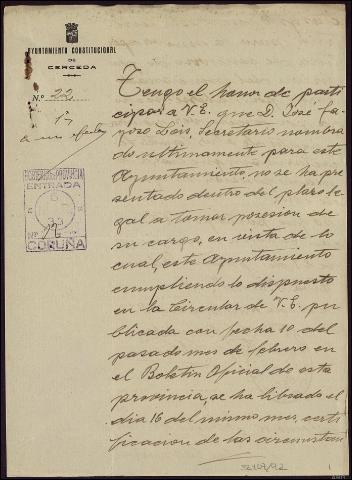 AYUNTAMIENTO CONSTITUCIONAL
DE
CERCEDA
N.º 22
Tengo el honor de parti
cipar a V.E. que D. José
Lois, Secretario nombra
do ultimamente para este
Ayuntamiento, no se ha pre
sentado dentro del plazo le
gal a tomar posesion de
su cargo, en vista de lo
cual, este Ayuntamiento
cumpliendo lo dispuesto
en la Circular de V.E. pu
blicada con fecha 10 del
pasado mes de febrero en
el Boletin Oficial de esta
provincia, se ha librado el
dia 16 del mismo mes, certi
ficacion de las circunstan
ENTRADA
CORUÑA